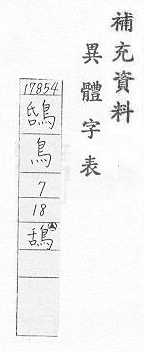 補充資料
異體字表
17854
鳥
7
18
鴰